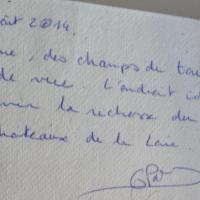 août 2014.
me, des champs de tou
de vue. L'endroit id
rir la richesse du
hateaux de la Loire.